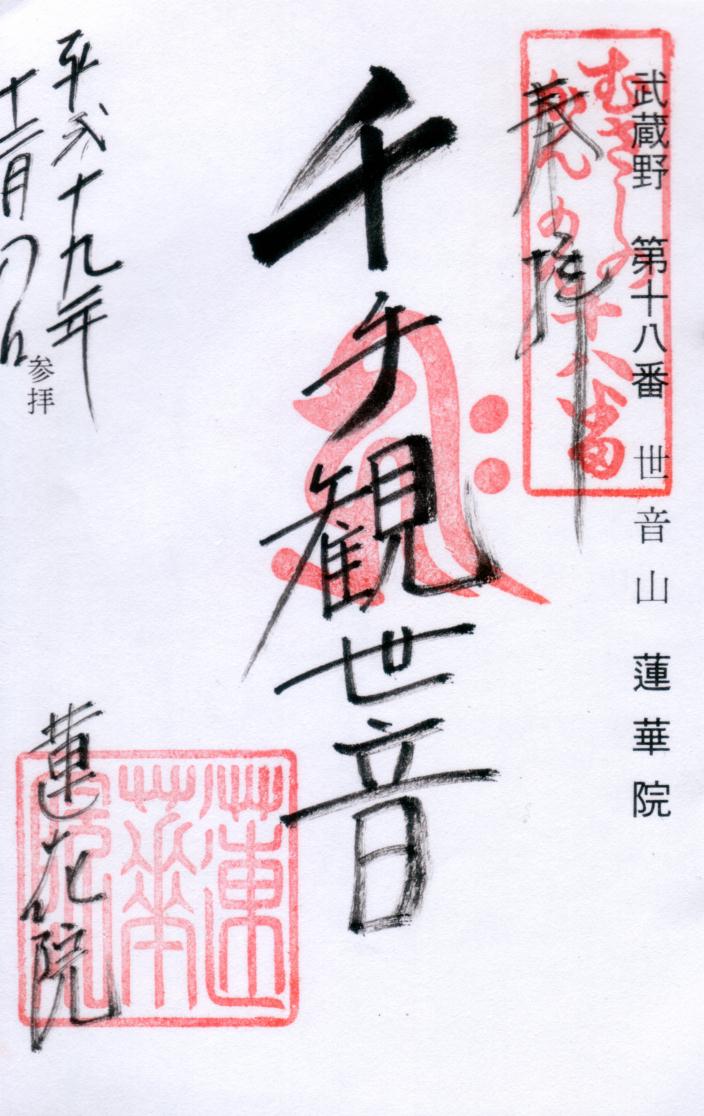 武蔵野 第十八番 世音山 蓮華院
むさしの
十八番
奉拝
千手観世音
蓮華院
平成十九年
十二月
参拝
蓮花院